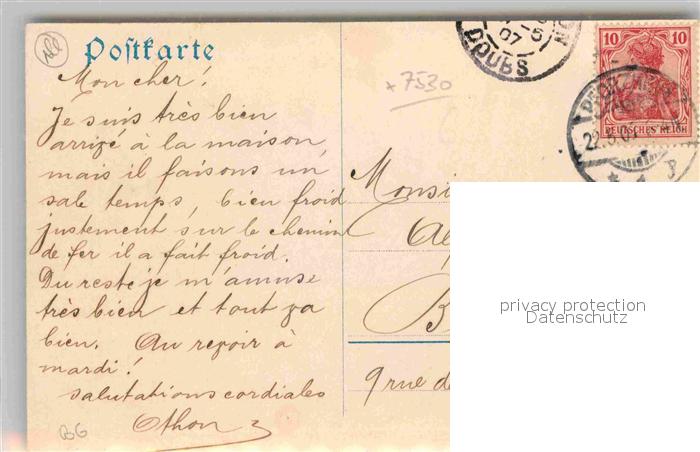 Postkarte
Mon cher!
Je suis très bien
arrivé à la maison,
mais il faisons un
sale temps, bien froid
justement sur le chemin
de fer il a fait froid.
Du reste je m'amuse
très bien et tout va
bien. Au revoir à
mardi!
salutations cordiales
Othon
+7530
DOUBS
07
10 10
DEUTSCHES REICH
22.5.07
Monsi
9 rue de
privacy protection
Datenschutz
BG